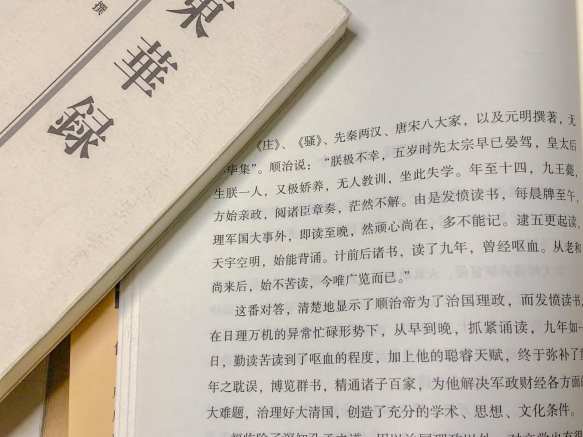 撰
東華録
《庄》、《骚》、先秦两汉、唐宋八大家,以及元明撰著,无
华集”。顺治说:“朕极不幸,五岁时先太宗早已晏驾,皇太后
生朕一人,又极娇养,无人教训,坐此失学。年至十四,九王薨,
方始亲政,阅诸臣章奏,茫然不解。由是发愤读书,每晨牌至午,
理军国大事外,即读至晚,然顽心尚在,多不能记。逮五更起读,
天宇空明,始能背诵。计前后诸书,读了九年,曾经呕血。从老和
尚来后,始不苦读,今唯广览而已。”
这番对答,清楚地显示了顺治帝为了治国理政,而发愤读书,
在日理万机的异常忙碌形势下,从早到晚,抓紧诵读,九年如一
日,勤读苦读到了呕血的程度,加上他的聪睿天赋,终于弥补了
年之耽误,博览群书,精通诸子百家,为他解决军政财经各方面
大难题,治理好大清国,创造了充分的学术、思想、文化条件。